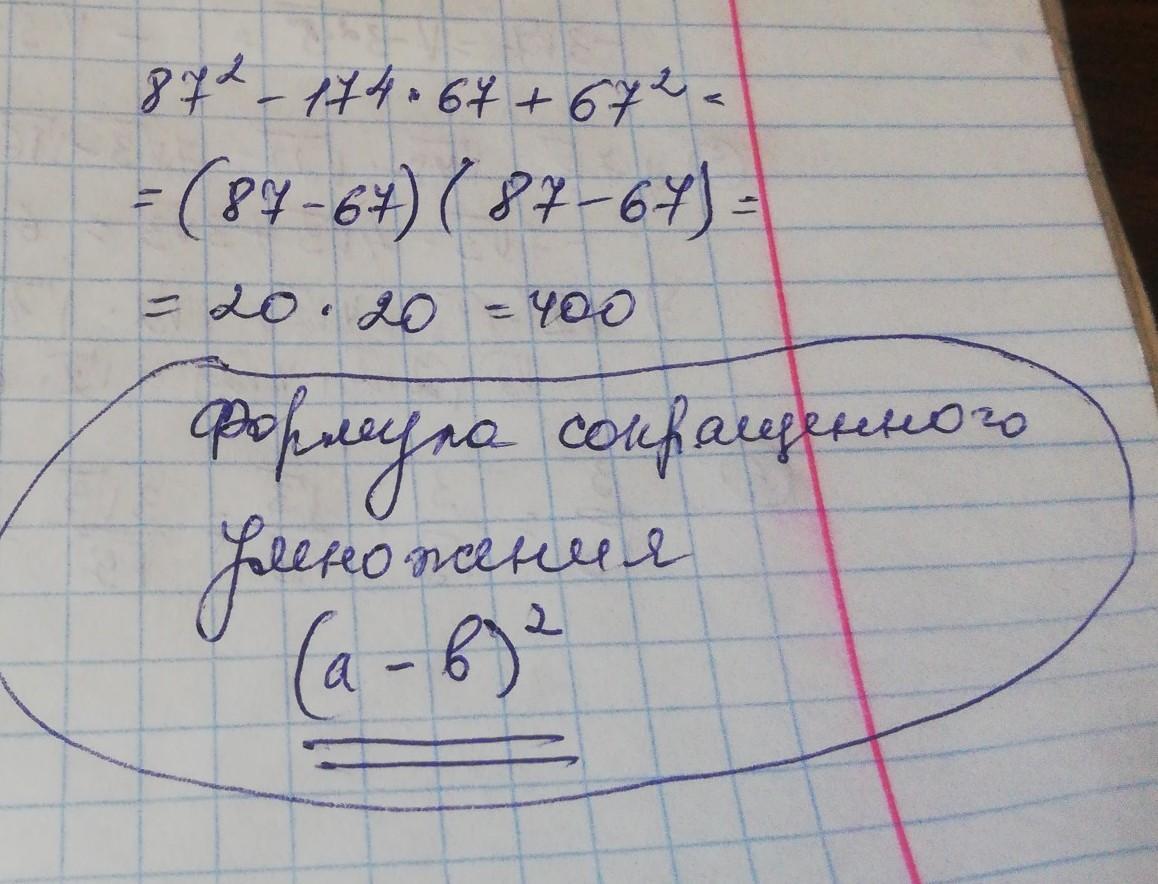 87² - 174 · 67 + 67² =
= (87 - 67) ( 87 - 67) =
= 20 · 20 = 400
Формула сокращенного
умножения
(a - b)²